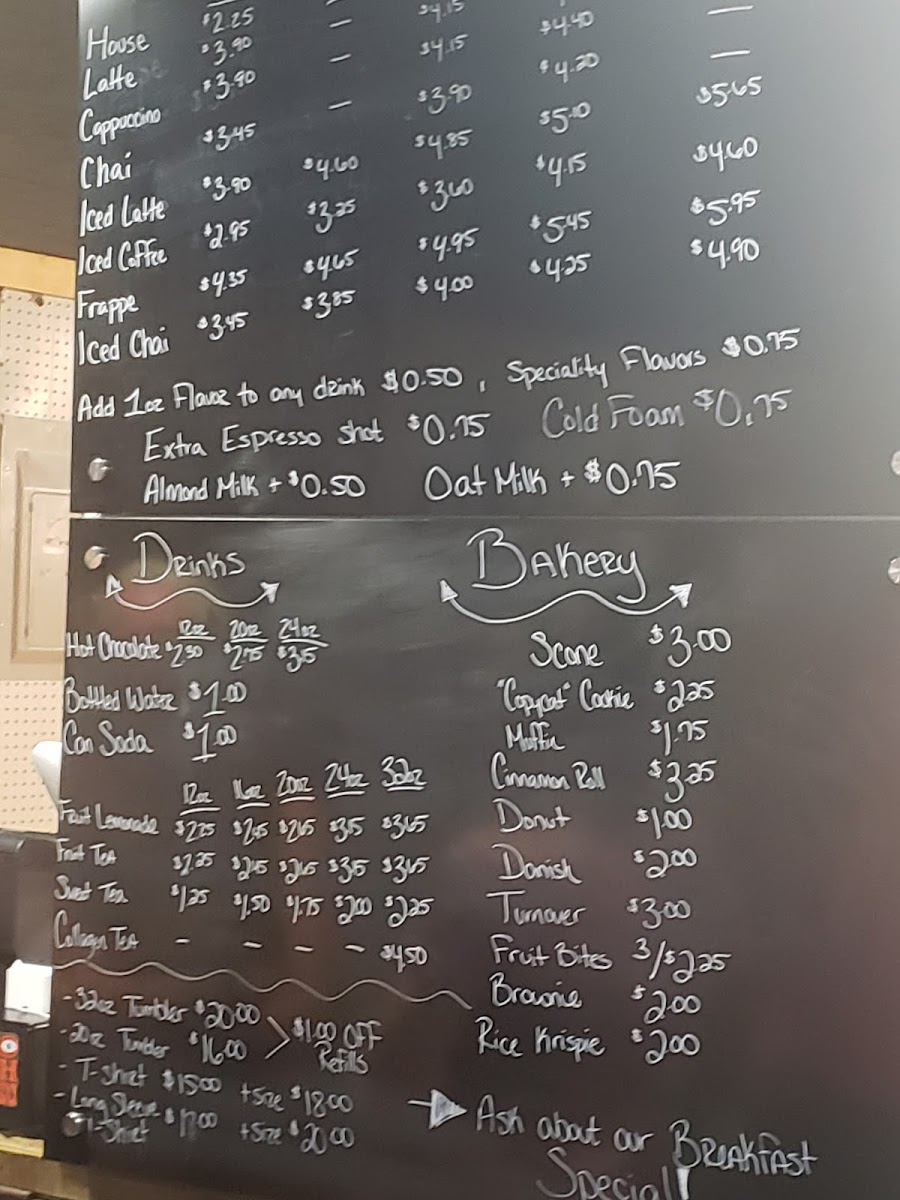 House $2.25
Latte $3.90 — $4.15
Cappuccino $3.90 — $4.15 $4.40 —
Chai $3.45 — $3.90 $4.20 —
Iced Latte $3.90 $4.60 $4.85 $5.10 $5.65
Iced Coffee $2.95 $3.25 $3.60 $4.15 $4.60
Frappe $4.35 $4.65 $4.95 $5.45 $5.95
Iced Chai $3.45 $3.85 $4.00 $4.25 $4.90
Add 1oz Flavor to any drink $0.50, Speciality Flavors $0.75
Extra Espresso shot $0.75 Cold Foam $0.75
Almond Milk + $0.50 Oat Milk + $0.75
Drinks
12oz 20oz 24oz
Hot Chocolate $2.50 $2.75 $3.15
Bottled Water $1.00
Can Soda $1.00
12oz 16oz 20oz 24oz 32oz
Fruit Lemonade $2.25 $2.45 $2.65 $3.15 $3.65
Fruit Tea $2.25 $2.45 $2.65 $3.15 $3.65
Sweet Tea $1.25 $1.50 $1.75 $2.00 $2.25
Collagen Tea - - - - $4.50
- 32oz Tumbler $20.00
- 20oz Tumbler $16.00
> $1.00 OFF
Refills
- T-Shirt $15.00 +Size $18.00
- Long Sleeve $17.00 +Size $20.00
T-Shirt
Bakery
Scone $3.00
"Copycat" Cookie $2.25
Muffin $1.75
Cinnamon Roll $3.25
Donut $1.00
Danish $2.00
Turnover $3.00
Fruit Bites 3/$2.25
Brownie $2.00
Rice Krispie $2.00
Ask about our Breakfast
Special!